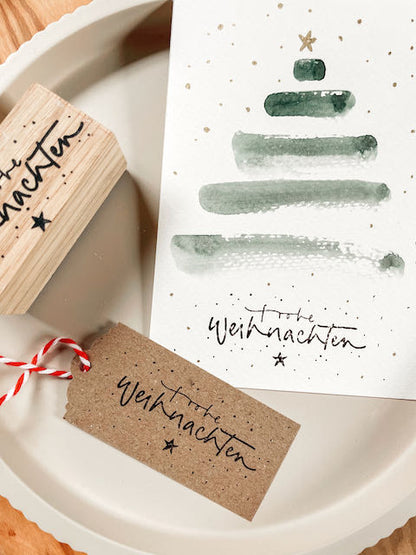 he
nachten
Frohe
Weihnachten
Frohe
Weihnachten